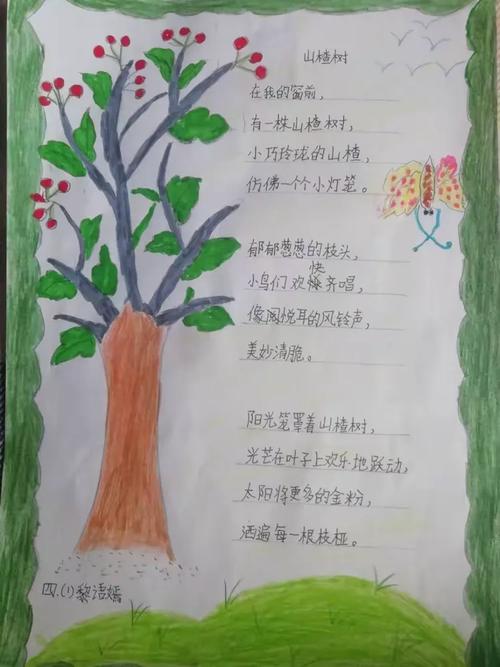 山楂树
在我的窗前，
有一株山楂树，
小巧玲珑的山楂，
仿佛一个个小灯笼。
郁郁葱葱的枝头，
小鸟们欢快齐唱，
像阁悦耳的风铃声，
美妙清脆。
阳光笼罩着山楂树，
光芒在叶子上欢乐地跃动，
太阳将更多的金粉，
洒遍每一根枝桠。
四.(1)黎语嫣